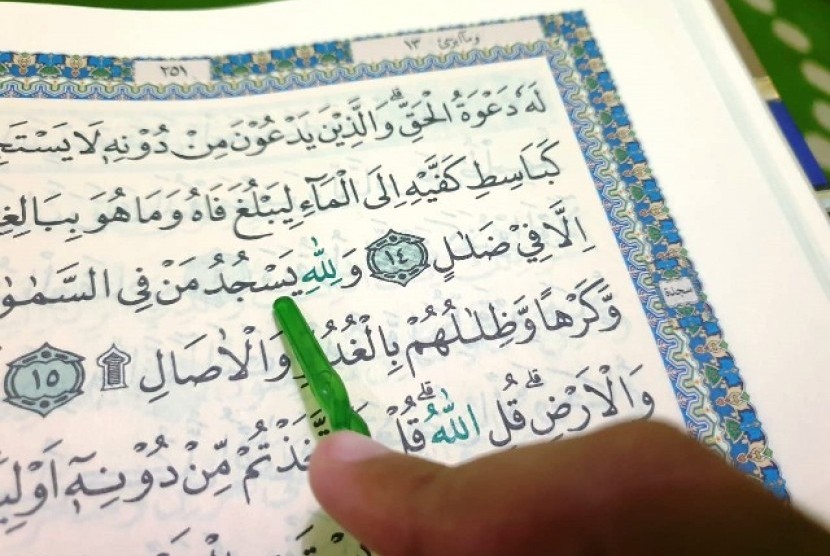 وما ابرئ ١٣
٢٥١
لَهٗ دَعْوَةُ الْحَقِّۗ وَالَّذِيْنَ يَدْعُوْنَ مِنْ دُوْنِهٖ لَا
كَبَاسِطِ كَفَّيْهِ اِلَى الْمَاۤءِ لِيَبْلُغَ فَاهُ وَمَا هُوَ
اِلَّا فِيْ ضَلٰلٍ ١٤ وَلِلّٰهِ يَسْجُدُ مَنْ فِى
سجدة
وَّكَرْهًا وَّظِلٰلُهُمْ بِالْغُدُوِّ وَالْاٰصَالِ ۩ ١٥
وَالْاَرْضِۗ قُلِ اللّٰهُۗ قُلْ مِّنْ دُوْنِهٖٓ